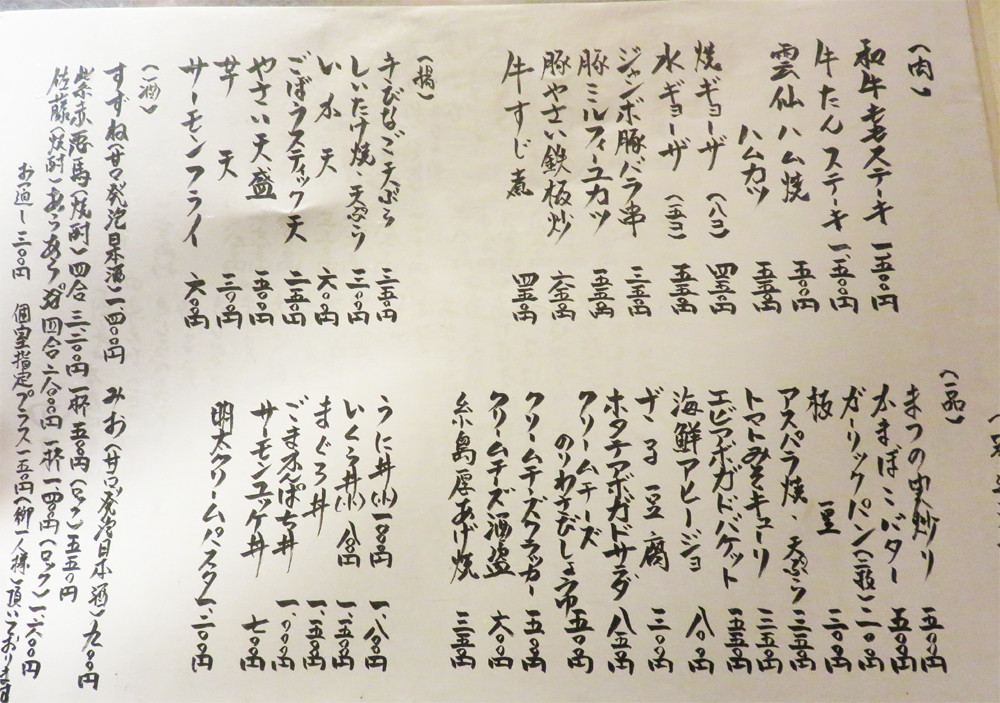 (肉)
和牛モモステーキ 一、五〇〇円
牛たんステーキ 一、五〇〇円
雲仙ハム焼 五〇〇円
ハムカツ 五五〇円
焼ギョーザ(八コ) 四五〇円
水ギョーザ(五コ) 五五〇円
ジャンボ豚バラ串 三五〇円
豚ミルフィーユカツ 五五〇円
豚やさい鉄板炒 六五〇円
牛すじ煮 四五〇円
(揚)
きびなご天ぷら 三五〇円
しいたけ焼、天ぷら 三〇〇円
いか天 六〇〇円
ごぼうスティック天 二五〇円
やさい天盛 五〇〇円
芋天 三〇〇円
サーモンフライ 六〇〇円
(一品)
まつの実炒り 五〇〇円
かまぼこバター 五〇〇円
ガーリックパン(二枚) 二〇〇円
枝豆 三〇〇円
アスパラ焼、天ぷら 三五〇円
トマトみそキューリ 三五〇円
エビアボガドバケット 五五〇円
海鮮アヒージョ 八〇〇円
ざる豆腐 三〇〇円
ホタテアボガドサラダ 八五〇円
クリームチーズ
のりわさびしょう油 五〇〇円
クリームチーズクラッカー 五〇〇円
クリームチーズ酒盗 六〇〇円
糸島厚あげ焼 三五〇円
うに丼(小)一〇〇〇円 一、八〇〇円
いくら丼(小)八〇〇円 一、五〇〇円
まぐろ丼 一、五〇〇円
ごまかんぱち丼 一、〇〇〇円
サーモンユッケ丼 七〇〇円
明太クリームパスタ 一、二〇〇円
(酒)
すずね(甘口発泡日本酒)一四〇〇円 みお(甘口発泡日本酒)九〇〇円
紫赤兎馬(焼酎)四合 三二〇〇円 一杯 五〇〇円(ロック)五五〇円
佐藤(焼酎)あらあらかぶ 四合 二八〇〇〇円 一杯一、四〇〇円(ロック)一、六〇〇円
お通し三〇〇円 個室指定プラス一五〇円(御一人様)頂いております